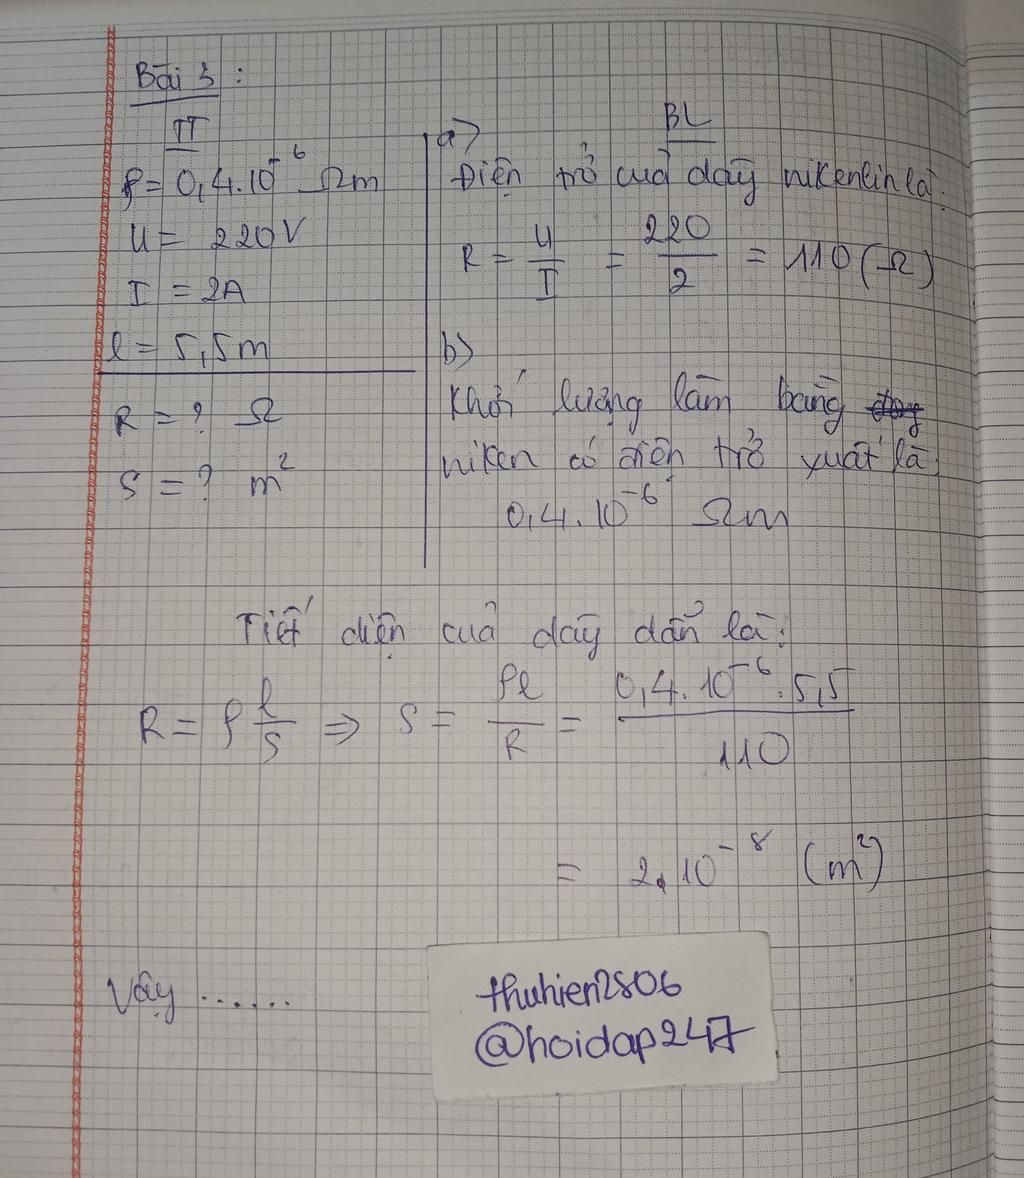 Bài 3 :
TT
ρ = 0,4.10⁻⁶ Ωm
U = 220V
I = 2A
l = 5,5m
R = ? Ω
S = ? m²
BL
a)
Điện trở của dây nikenlin là:
R = U/I = 220/2 = 110 (Ω)
b)
Khối lượng làm bằng
niken có điện trở xuất là
0,4.10⁻⁶ Ωm
Tiết diện của dây dẫn là:
R = ρ l/S => S = ρl/R = 0,4.10⁻⁶.5,5/110
= 2.10⁻⁸ (m²)
Vậy ......
thuhien2806
@hoidap247